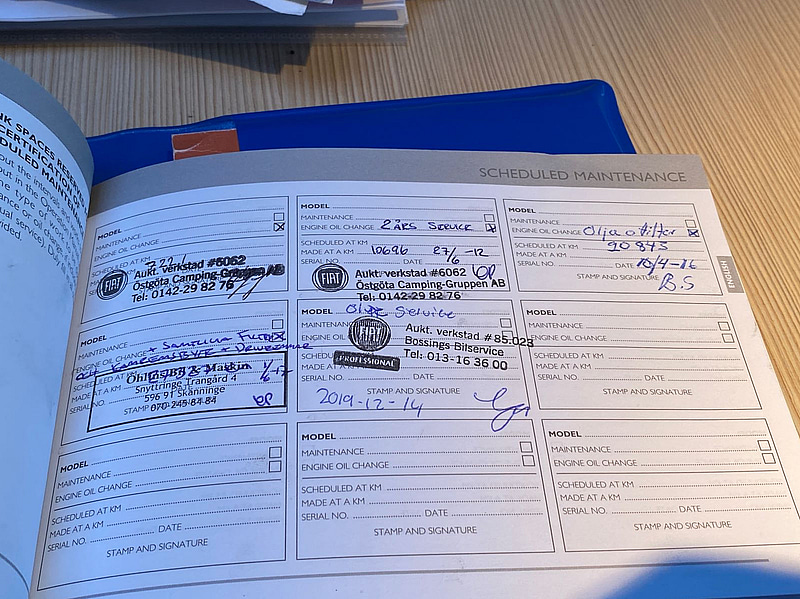 NK SPACES RESERVE
CERTIFICATION
DULED MAINTEN
out the interval
out in the
me type of work
nance or oil
ual service).
ded.
SCHEDULED MAINTENANCE
ENGLISH
MODEL
MAINTENANCE
ENGINE OIL CHANGE
Aukt. verkstad #6062
Östgöta Camping-Gruppen AB
Tel: 0142-29 82 76
FIAT
MODEL
MAINTENANCE
ENGINE OIL CHANGE 2 ÅRS SERVICE
SCHEDULED AT KM
MADE AT A KM 10696 27/6 -12
SERIAL NO.
FIAT
Aukt. verkstad #6062
Östgöta Camping-Gruppen AB
Tel: 0142-29 82 76
MODEL
MAINTENANCE
ENGINE OIL CHANGE Olja o filter
SCHEDULED AT KM 90843
MADE AT A KM
SERIAL NO. DATE 10/4-16
STAMP AND SIGNATURE
B.S
MODEL
+ SAMTLIGA FILTER
ENGINE OIL CHANGE
Snyttringe Trangård 4
596 91 Skänninge
070-245 84 84
STAMP
MODEL
Olje Service
FIAT
PROFESSIONAL
Aukt. verkstad # 85.023
Bossings Bilservice
Tel: 013-16 36 00
SERIAL NO. DATE
STAMP AND SIGNATURE
2019-12-14
MODEL
MAINTENANCE
ENGINE OIL CHANGE
SCHEDULED AT KM
MADE AT A KM
SERIAL NO. DATE
STAMP AND SIGNATURE
MODEL
MAINTENANCE
ENGINE OIL CHANGE
SCHEDULED AT KM
MADE AT A KM
SERIAL NO. DATE
STAMP AND SIGNATURE
MODEL
MAINTENANCE
ENGINE OIL CHANGE
SCHEDULED AT KM
MADE AT A KM
SERIAL NO. DATE
STAMP AND SIGNATURE
MODEL
MAINTENANCE
ENGINE OIL CHANGE
SCHEDULED AT KM
MADE AT A KM
SERIAL NO. DATE
STAMP AND SIGNATURE